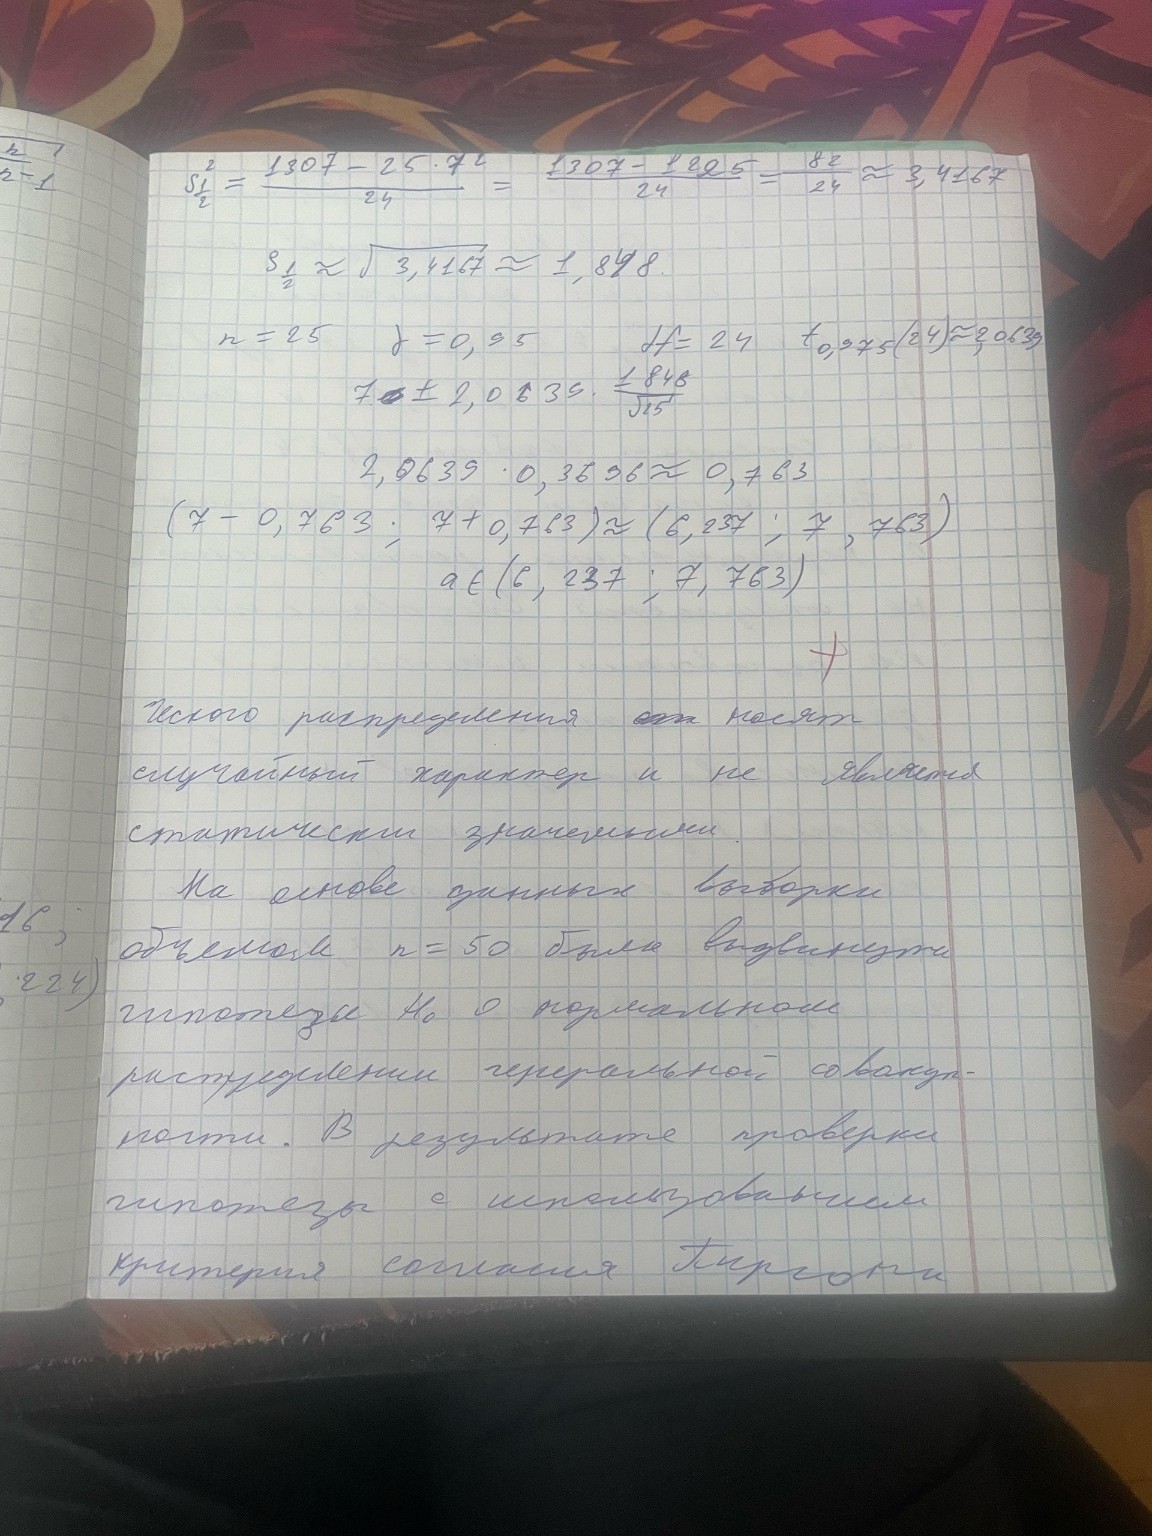 n
n-1
S²½ = (1307 - 25·7²)/24 = (1307 - 1225)/24 = 82/24 ≈ 3,4167
S½ ≈ √3,4167 ≈ 1,848.
n = 25 γ = 0,95 df = 24 t0,975(24) ≈ 2,0639
7 ± 2,0639 · 1848/√25
2,0639 · 0,3696 ≈ 0,763
(7 - 0,763 ; 7 + 0,763) ≈ (6,237 ; 7,763)
a ∈ (6,237 ; 7,763)
ческого распределения носят
случайный характер и не является
статически значемыми.
На основе данных выборки
16;
объемом n = 50 была выдвинута
224)
гипотеза H₀ о нормальном
распределении генеральной совокуп-
ности. В результате проверки
гипотезы с использованием
критерия согласия Пирсона